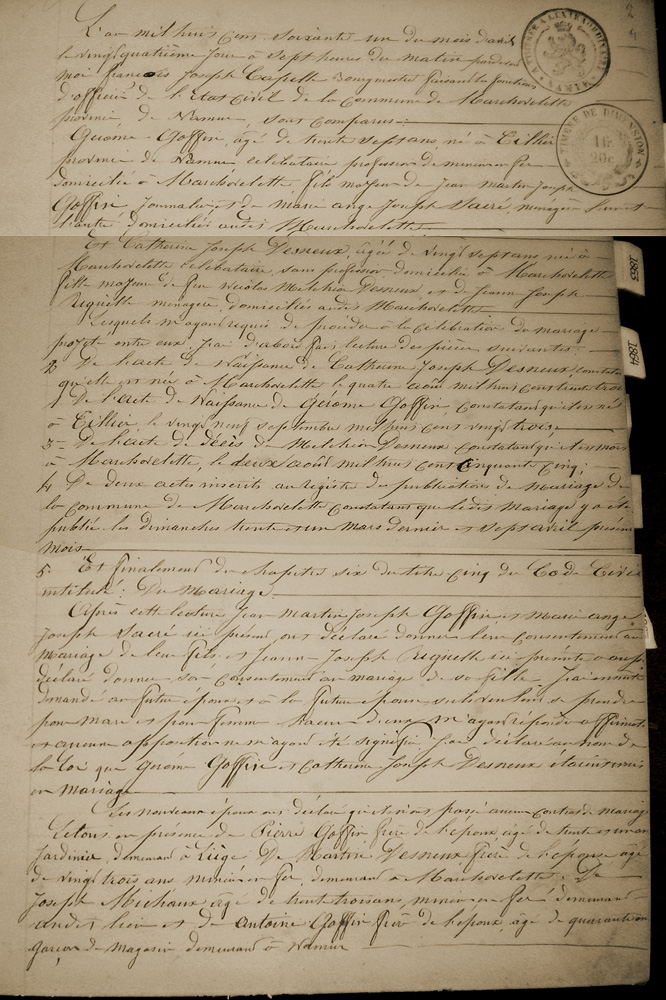 L'an mil huit cent soixante un du mois d'avril
le vingt quatrième jour à sept heures du matin pardevant
moi françois Joseph Capelle Bourgmestre faisant les fonctions
d'officier de l'Etat Civil de la Commune de Marchovelette
province de Namur, sont comparus
Gérome Goffin, âgé de trente sept ans, né à Tillier
province de Namur célibataire profession de mineur en fer
domicilié à Marchovelette, fils majeur de Jean Martin Joseph
Goffin Journalier et de marie ange Joseph Sacré, ménagère l'un et
l'autre domiciliés audit Marchovelette
Et Catherine Joseph Desneux, âgée de vingt sept ans née à
Marchovelette célibataire, sans profession domiciliée à Marchovelette
fille majeure de feu Nicolas Melchior Desneux et de Jeanne Joseph
Riguelle ménagère, domiciliée audit Marchovelette
Lesquels m'ayant requis de procéder à la célébration du mariage
projeté entre eux, j'ai d'abord fait lecture des pièces suivantes
2 De l'acte de Naissance de Catherine Joseph Desneux, constatant
qu'elle est née à Marchovelette le quatre août mil huit cent trente trois
1 De l'acte de Naissance de Gérome Goffin, constatant qu'il est né
à Tillier, le vingt neuf septembre mil huit cent vingt trois;
3 De l'acte de décès de Melchior Desneux constatant qu'il est mort
à Marchovelette, le deux août mil huit cent cinquante cinq;
4 De deux actes inscrits au registre des publications de mariage de
la commune de Marchovelette constatant que ledit mariage y a été
publié les dimanches trente et un mars dernier et sept avril présent
mois
5. Et finalement du chapitre six du titre cinq du Code Civil
intitulé: Du Mariage
Après cette lecture Jean Martin Joseph Goffin et Marie ange
Joseph Sacré ici présents ont déclaré donner leur consentement au
mariage de leur fils et Jeanne Joseph Riguelle ici présente a aussi
déclaré donner son consentement au mariage de sa fille, j'ai ensuite
demandé au futur époux et à la future épouse s'ils veulent se prendre
pour mari et pour femme chacun d'eux m'ayant répondu affirmativt
et aucune opposition ne m'ayant été signifiée j'ai déclaré au nom de
la loi que Gérome Goffin et Catherine Joseph Desneux étaient unis
en mariage
Les nouveaux époux ont déclaré qu'il n'ont passé aucun contrat de mariage
Le tout en présence de Pierre Goffin frère de l'époux âgé de trente et un ans
Jardinier, demeurant à Liège De Martin Desneux frère de l'épouse âgé
de vingt trois ans mineur en fer, demeurant à Marchovelette. De
Joseph Michaux âgé de trent trois ans, mineur en fer demeurant
audit lieu et de Antoine Goffin frère de l'époux, âgé de quarante
garçon de magasin demeurant à Namur
TIMBRE DE DIMENSION
1fr
20c
NAMUR
1863
1864